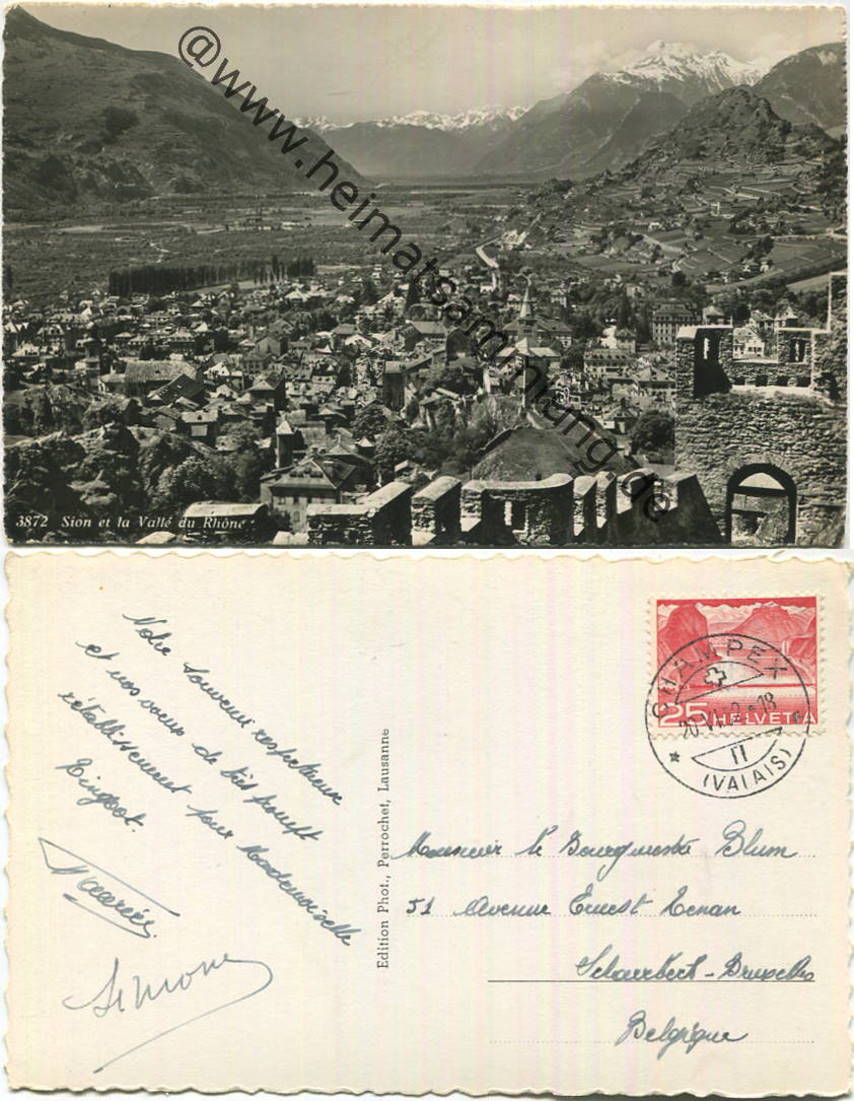 @www.heimatsammlung.de
3872 Sion et la Vallé du Rhône
Notre souvenir respectueux
et nos voeux de très prompt
rétablissement pour Mademoiselle
Simone
Edition Phot., Perrochet, Lausanne
25 HELVETIA
CHAMPEX
(VALAIS)
Monsieur le Bourgmestre Blum
51 Avenue Ernest Renan
Schaerbeek-Bruxelles
Belgique